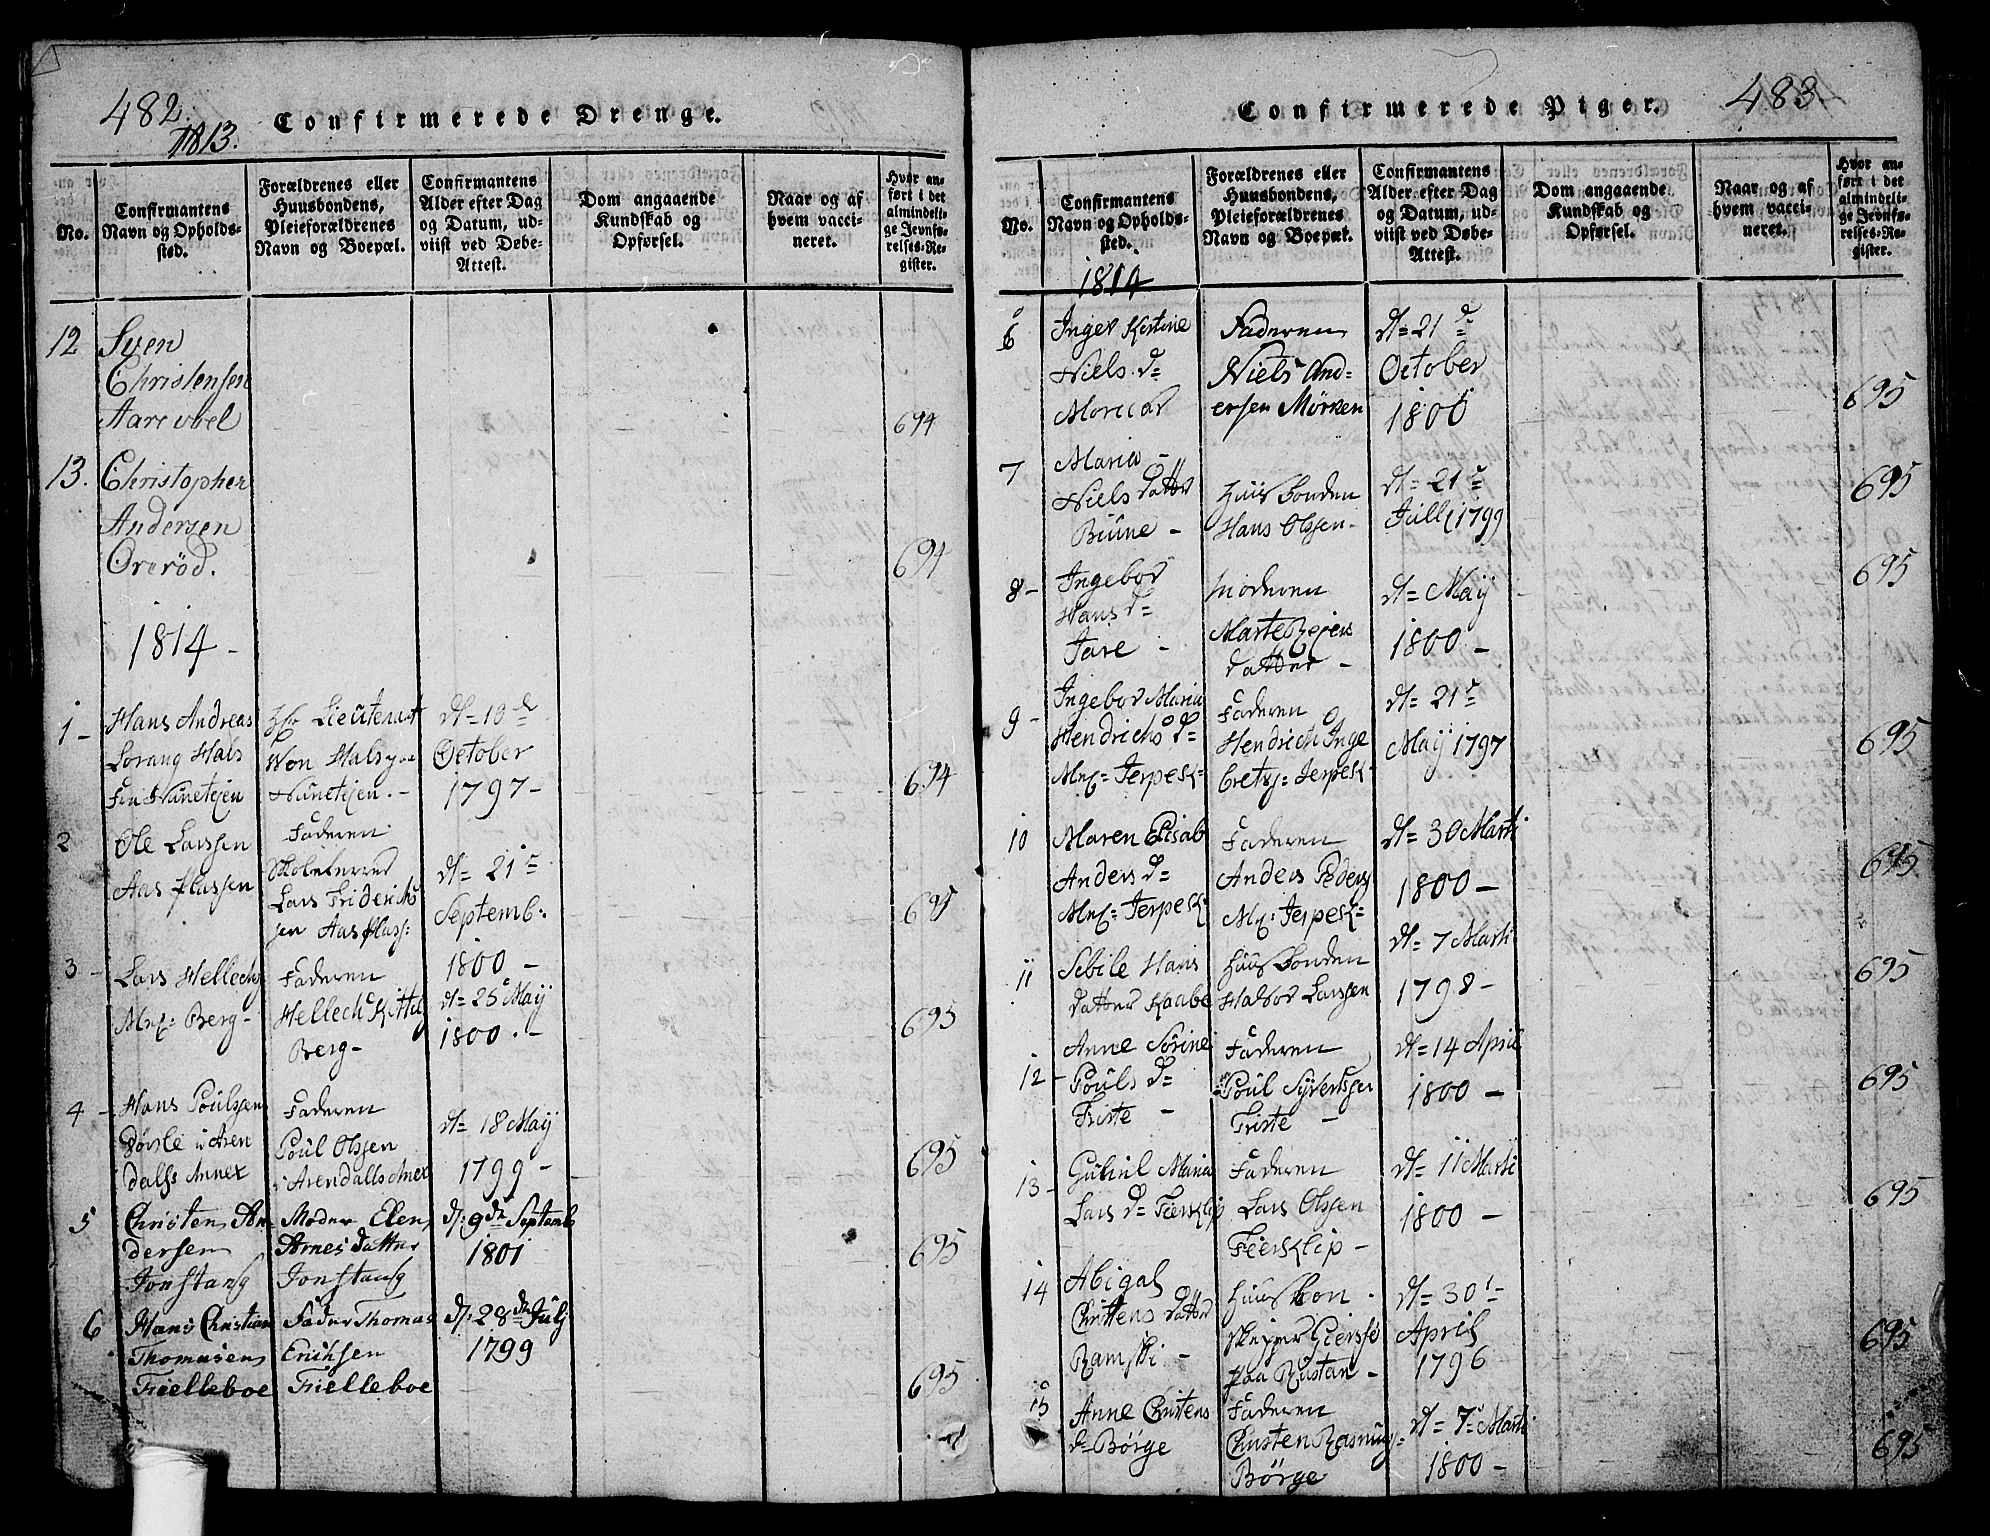 482.
1813.
Confirmerede Drenge.
No.
Confirmantens
Navn og Opholds-
sted.
Forældrenes eller
Huusbondens,
Pleieforældrenes
Navn og Boepæl.
Confirmantens
Alder efter Dag
og Datum, ud-
viist ved Døbe-
Attest.
Dom angaaende
Kundskab og
Opførsel.
Naar og af
hvem vacci-
neret.
Hvor an-
ført i det
almindeli-
ge Jevnfø-
relses-Re-
gister.
12
Sven
Christensen
694
13.
Christopher
Andersen
Ørerød.
694
1814 -
1 -
Hans Andreas
Lorang Hals
Hr Lieutenant
Von Hals
d= 10de
October
1797 -
694
2
Ole Larssen
Aas Plassen
Faderen
Lars Friderich
sen Aas Plass:
d= 21
Septemb:
1800 -
695
3 -
Lars Hellechs
Berg -
Faderen
Hellech Kittels
Berg -
d= 25 Maÿ
1800. -
695
4 -
Hans Poulssen
i Aren
dalss Annex
Faderen
Poul Olssen
i Arendalls Anex
d= 18 Maÿ
1799 -
695
5
Christen An-
dersen
Jonstang
Moder Elen
Arnes datter
Jonstang
d: 9de Septemb
1801
695
6
Hans Christian
Thomasen
Trielleboe
Fader Thomas
Erichsen
Trielleboe
d: 28de Julj
1799
695
Confirmerede Piger.
483.
No.
Confirmantens
Navn og Opholds-
sted.
Forældrenes eller
Huusbondens,
Pleieforældrenes
Navn og Boepæl.
Confirmantens
Alder efter Dag
og Datum, ud-
viist ved Døbe-
Attest.
Dom angaaende
Kundskab og
Opførsel.
Naar og af
hvem vacci-
neret.
Hvor an-
ført i det
almindeli-
ge Jevnfø-
relses-Re-
gister.
1814
6
Inger Kirstine
Niels d=
Faderen
Niels And-
ersen Mörken
d= 21de
October
1800
695
7
Maria -
Niels datter
Huusbonden
Hans Olssen -
d= 21
Julli 1799
695
8 -
Ingebor
Hans d=
Jare -
Moderen
Marte Rejers
datter -
d= Maÿ
1800 -
695
9 -
Ingebor Maria
Hendrichs d=
Jerpesk=
Faderen
Hendrich Inge
bretsj= Jerpesk=
d= 21
Maÿ 1797
695
10
Maren Elisab
Anders d=
Jerpesk=
Faderen
Anders Peders
Jerpesk=
d= 30 Marti
1800 -
695
11
Sebile Hans
datter Kaabe
Huusbonden
Halvor Larssen
d= 7 Marti
1798 -
695
12 -
Anne Sörine
Pouls d=
Triste -
Faderen
Poul Syvertsen
Triste -
d= 14 April
1800 -
695
13 -
Maria
Lars d= Fierskip
Faderen
Lars Olssen
Feersklip -
d= 11 Marti
1800 -
695
14
Abigal
Christens datter
Huusbon
Skipper
paa Rustan -
d= 30
April
1796
695
15
Anne Christens
d= Börge
Faderen
Christen Rasmuss=
Börge
d= 7 Marti
1800 -
695